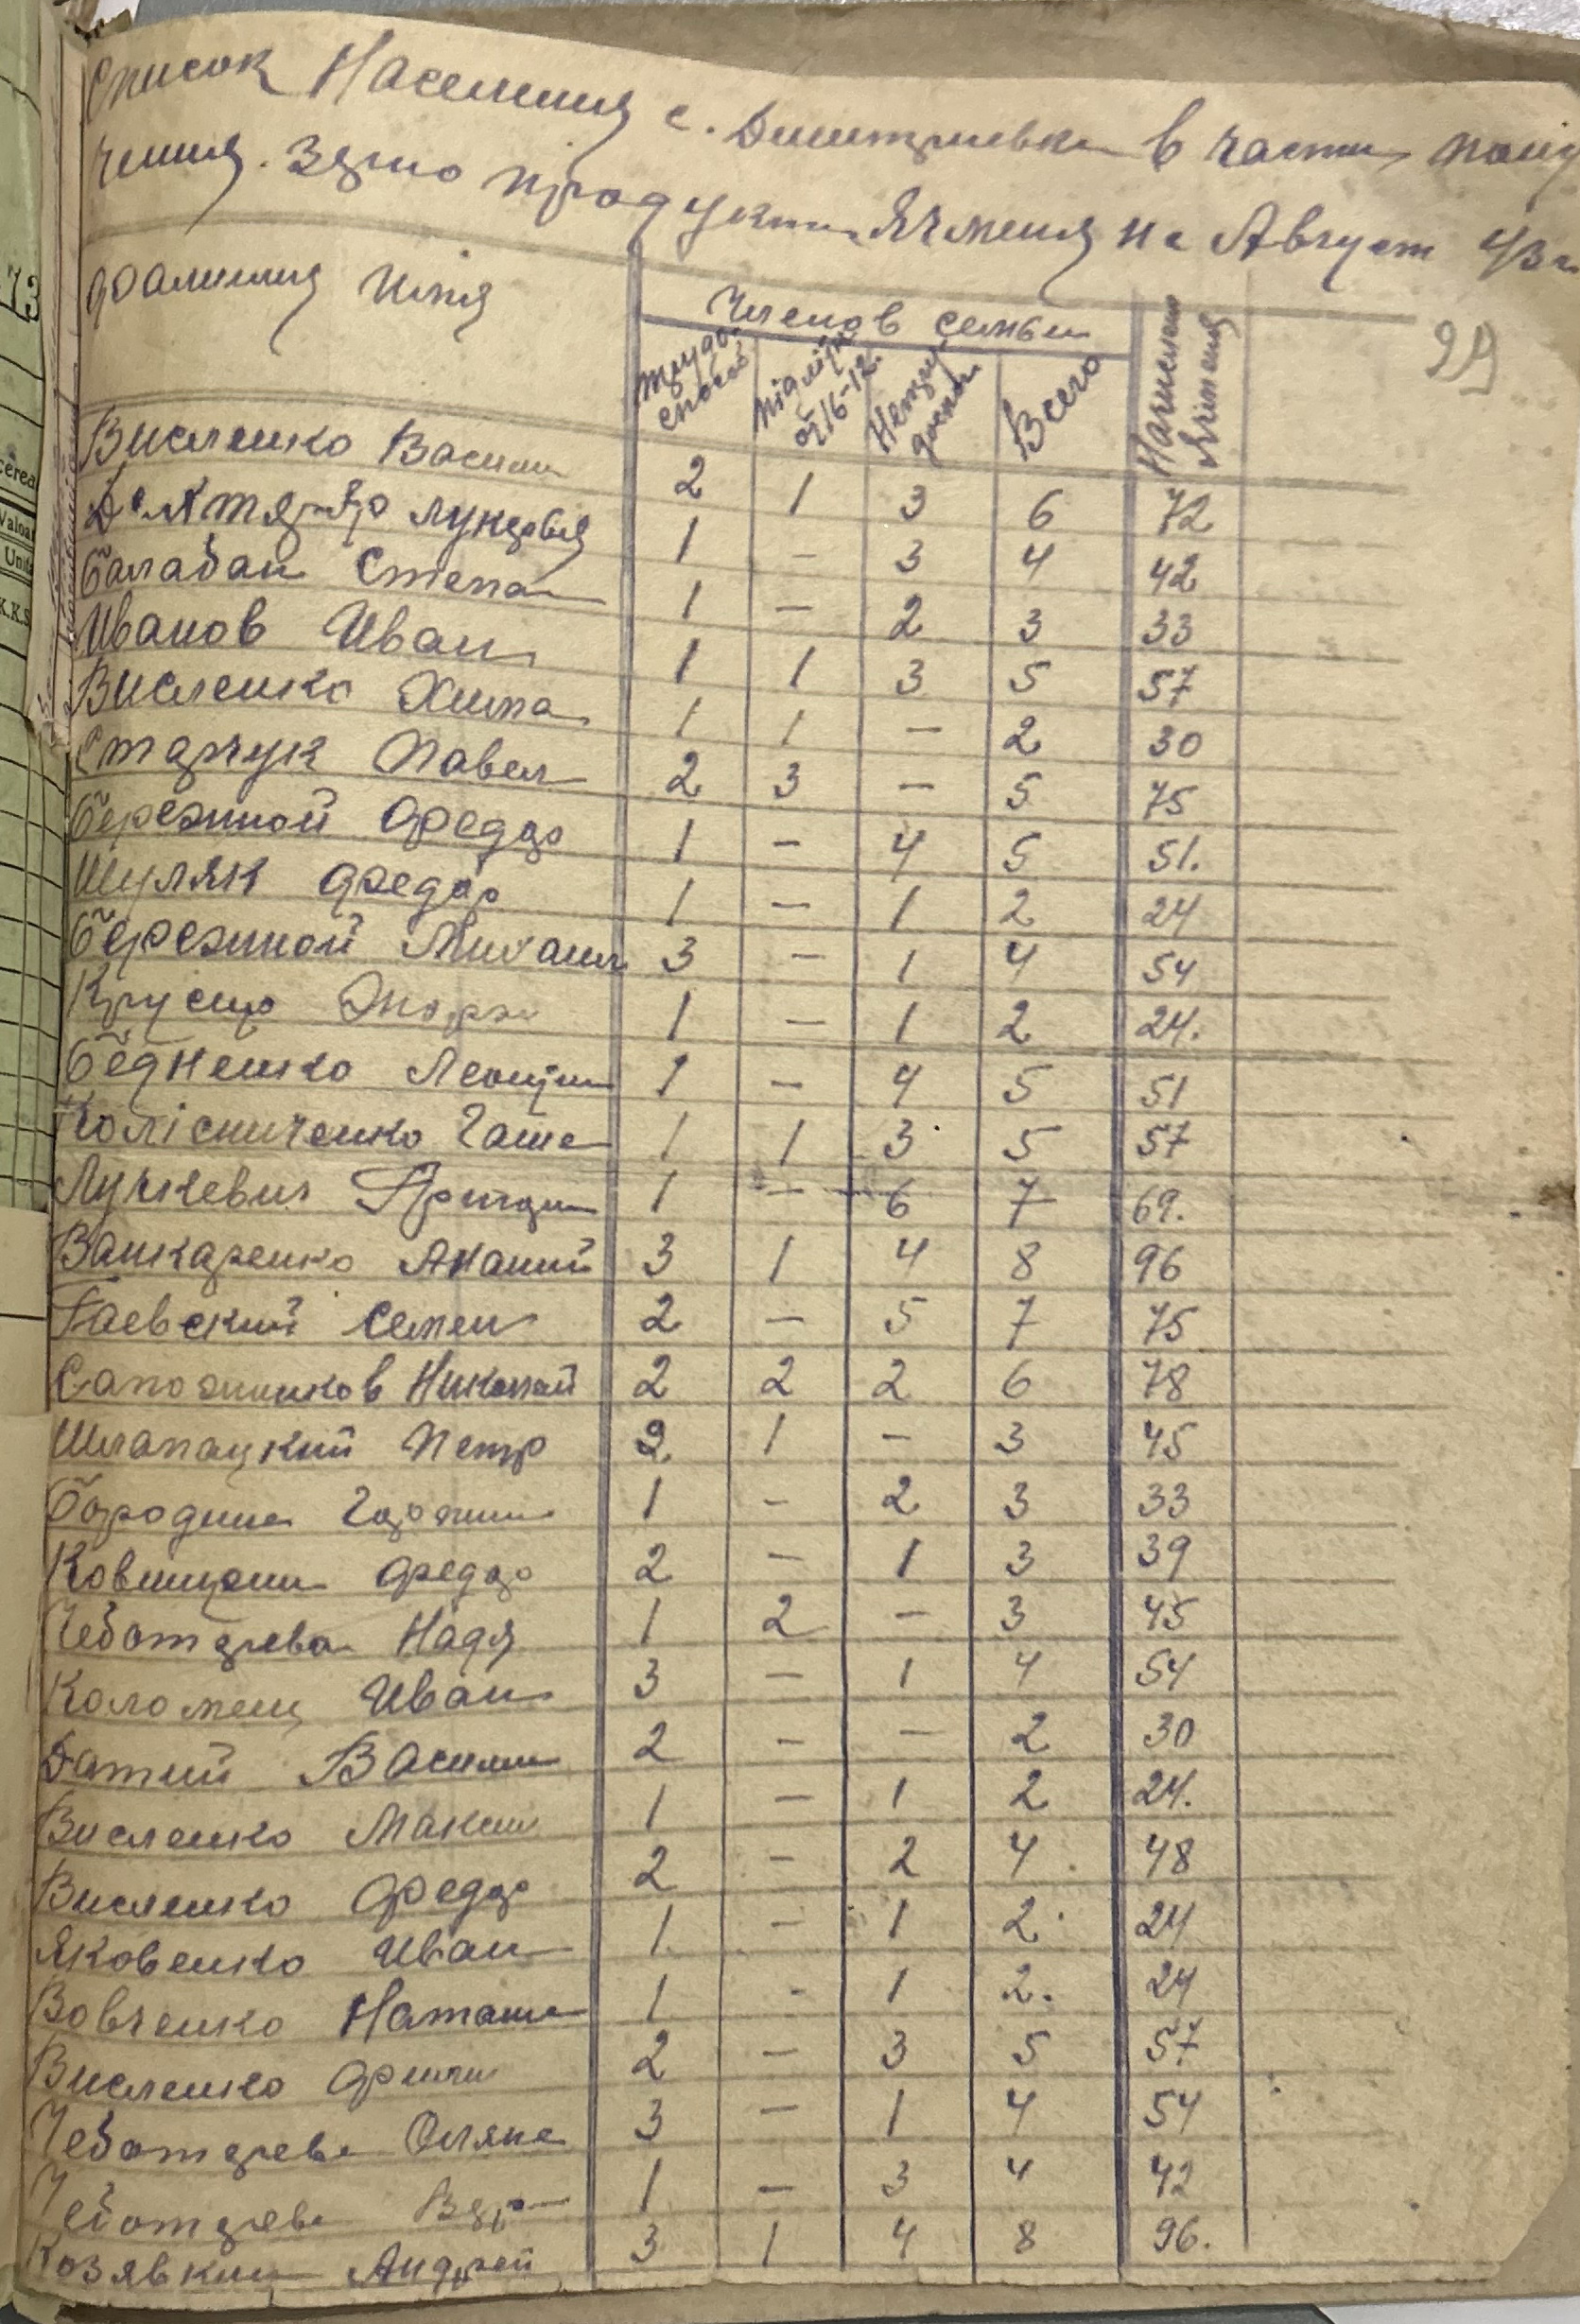 Список Населения с. Димитриевка в части полу
чения. Зерно продукти Ячменя на Август 43 г
29
Фамилия Имя
Членов семьи
Трудо-
способ
підлітк
от 16-12.
Нетру-
доспос
Всего
Начислено
Ячменя
Висленко Василий 2 1 3 6 72
1 - 3 4 42
Балабан Степан 1 - 2 3 33
Иванов Иван 1 1 3 5 57
Висленко Химпа 1 1 - 2 30
Старчук Павел 2 3 - 5 75
Бережной Федор 1 - 4 5 51.
Шуляк Федор 1 - 1 2 24
Бережной Михаил 3 - 1 4 54
1 - 1 2 24.
Бедненко Леонтии 1 - 4 5 51
Колісниченко Гаша 1 1 3 5 57
Лучкевич 1 - 6 7 69.
Ванкаренко Ананий 3 1 4 8 96
Гаевский Семен 2 - 5 7 75
Сапожников Николай 2 2 2 6 78
Шлапацкий Петр 2 1 - 3 45
Бородина 1 - 2 3 33
Федор 2 - 1 3 39
Чеботарева Надя 1 2 - 3 45
Коломеец Иван 3 - 1 4 54
Датий Василий 2 - - 2 30
Висленко Максим 1 - 1 2 24.
Висленко Федор 2 - 2 4 48
Яковенко Иван 1 - 1 2 24
Вовченко Наташа 1 - 1 2. 24
Висленко 2 - 3 5 57
Чеботарева Оляна 3 - 1 4 54
Чеботарева 1 - 3 4 42
Козявкин Андрей 3 1 4 8 96.